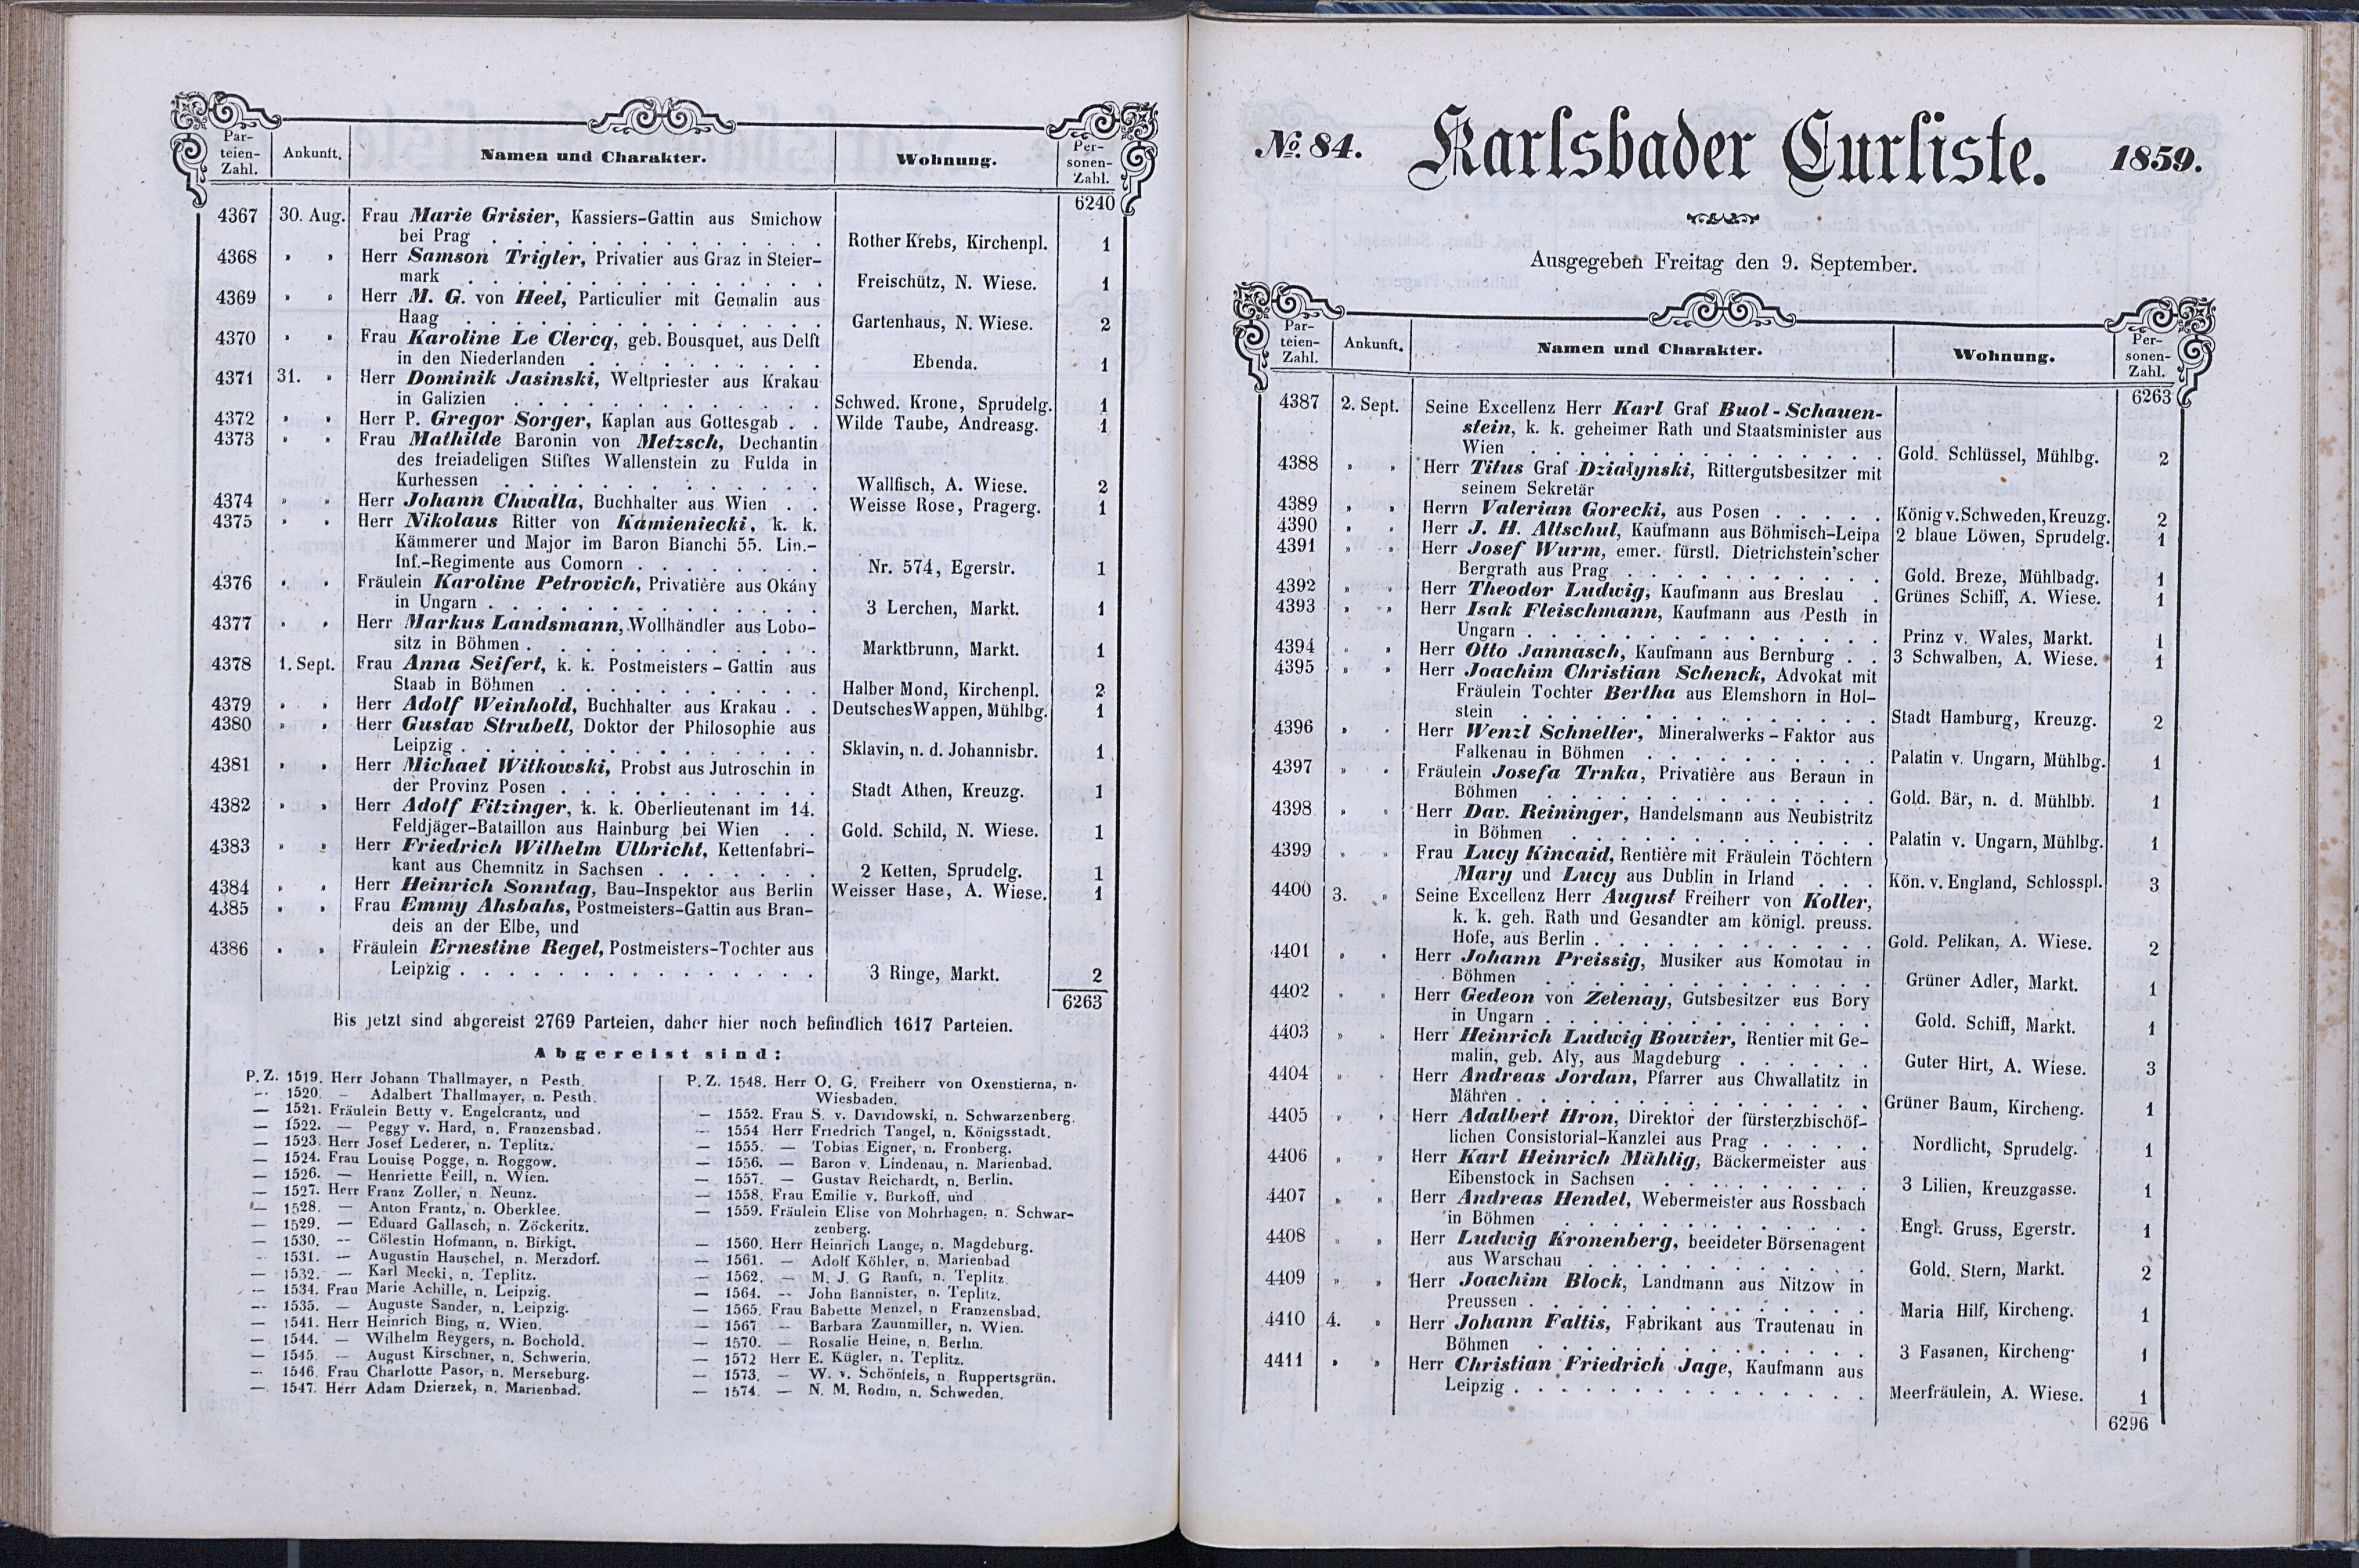 Par-
teien-
Zahl.
Ankunft.
Namen und Charakter.
Wohnung.
Per-
sonen-
Zahl.
6240
4367 30. Aug. Frau Marie Grisier, Kassiers-Gattin aus Smichow
bei Prag . . . Rother Krebs, Kirchenpl. 1
4368 " " Herr Samson Trigler, Privatier aus Graz in Steier-
mark . . . Freischütz, N. Wiese. 1
4369 " " Herr M. G. von Heel, Particulier mit Gemalin aus
Haag . . . Gartenhaus, N. Wiese. 2
4370 " " Frau Karoline Le Clercq, geb. Bousquet, aus Delft
in den Niederlanden . . . Ebenda. 1
4371 31. " Herr Dominik Jasinski, Weltpriester aus Krakau
in Galizien . . . Schwed. Krone, Sprudelg. 1
4372 " " Herr P. Gregor Sorger, Kaplan aus Gottesgab . . Wilde Taube, Andreasg. 1
4373 " " Frau Mathilde Baronin von Metzsch, Dechantin
des freiadeligen Stiftes Wallenstein zu Fulda in
Kurhessen . . . Wallfisch, A. Wiese. 2
4374 " " Herr Johann Chwalla, Buchhalter aus Wien . . Weisse Rose, Pragerg. 1
4375 " " Herr Nikolaus Ritter von Kamieniecki, k. k.
Kämmerer und Major im Baron Bianchi 55. Lin.-
Inf.-Regimente aus Comorn . . . Nr. 574, Egerstr. 1
4376 " " Fräulein Karoline Petrovich, Privatière aus Okány
in Ungarn . . . 3 Lerchen, Markt. 1
4377 " " Herr Markus Landsmann, Wollhändler aus Lobo-
sitz in Böhmen . . . Marktbrunn, Markt. 1
4378 1. Sept. Frau Anna Seifert, k. k. Postmeisters-Gattin aus
Staab in Böhmen . . . Halber Mond, Kirchenpl. 2
4379 " " Herr Adolf Weinhold, Buchhalter aus Krakau . . Deutsches Wappen, Mühlbg. 1
4380 " " Herr Gustav Strubell, Doktor der Philosophie aus
Leipzig . . . Sklavin, n. d. Johannisbr. 1
4381 " " Herr Michael Witkowski, Probst aus Jutroschin in
der Provinz Posen . . . Stadt Athen, Kreuzg. 1
4382 " " Herr Adolf Fitzinger, k. k. Oberlieutenant im 14.
Feldjäger-Bataillon aus Hainburg bei Wien . . Gold. Schild, N. Wiese. 1
4383 " " Herr Friedrich Wilhelm Ulbricht, Kettenfabri-
kant aus Chemnitz in Sachsen . . . 2 Ketten, Sprudelg. 1
4384 " " Herr Heinrich Sonntag, Bau-Inspektor aus Berlin Weisser Hase, A. Wiese. 1
4385 " " Frau Emmy Ahsbahs, Postmeisters-Gattin aus Bran-
deis an der Elbe, und
4386 " " Fräulein Ernestine Regel, Postmeisters-Tochter aus
Leipzig . . . 3 Ringe, Markt. 2
6263
Bis jetzt sind abgereist 2769 Parteien, daher hier noch befindlich 1617 Parteien.
Abgereist sind:
P. Z. 1519. Herr Johann Thallmayer, n Pesth.
— 1520. — Adalbert Thallmayer, n. Pesth.
— 1521. Fräulein Betty v. Engelcrantz, und
— 1522. — Peggy v. Hard, n. Franzensbad.
— 1523. Herr Josef Lederer, n. Teplitz.
— 1524. Frau Louise Pogge, n. Roggow.
— 1526. — Henriette Feill, n. Wien.
— 1527. Herr Franz Zoller, n. Neunz.
— 1528. — Anton Frantz, n. Oberklee.
— 1529. — Eduard Gallasch, n. Zöckeritz.
— 1530. — Cölestin Hofmann, n. Birkigt.
— 1531. — Augustin Hauschel, n. Merzdorf.
— 1532. — Karl Mecki, n. Teplitz.
— 1534. Frau Marie Achille, n. Leipzig.
— 1535. — Auguste Sander, n. Leipzig.
— 1541. Herr Heinrich Bing, n. Wien.
— 1544. — Wilhelm Reygers, n. Bochold.
— 1545. — August Kirschner, n. Schwerin.
— 1546. Frau Charlotte Pasor, n. Merseburg.
— 1547. Herr Adam Dzierzek, n. Marienbad.
P. Z. 1548. Herr O. G. Freiherr von Oxenstierna, n.
Wiesbaden.
— 1552. Frau S. v. Davidowski, n. Schwarzenberg.
— 1554 Herr Friedrich Tangel, n. Königsstadt.
— 1555. — Tobias Eigner, n. Fronberg.
— 1556. — Baron v. Lindenau, n. Marienbad.
— 1557. — Gustav Reichardt, n. Berlin.
— 1558. Frau Emilie v. Burkoff, und
— 1559. Fräulein Elise von Mohrhagen, n. Schwar-
zenberg.
— 1560. Herr Heinrich Lange, n. Magdeburg.
— 1561. — Adolf Köhler, n. Marienbad
— 1562. — M. J. G Ranft, n. Teplitz
— 1564. — John Bannister, n. Teplitz.
— 1565. Frau Babette Menzel, n Franzensbad.
— 1567 — Barbara Zaunmiller, n. Wien.
— 1570. — Rosalie Heine, n. Berlin.
— 1572 Herr E. Kügler, n. Teplitz.
— 1573. — W. v. Schönfels, n. Ruppertsgrün.
— 1574. — N. M. Rodin, n. Schweden.
No. 84. Karlsbader Curliste. 1859.
Ausgegeben Freitag den 9. September.
Par-
teien-
Zahl.
Ankunft.
Namen und Charakter.
Wohnung.
Per-
sonen-
Zahl.
6263
4387 2. Sept. Seine Excellenz Herr Karl Graf Buol-Schauen-
stein, k. k. geheimer Rath und Staatsminister aus
Wien . . . Gold. Schlüssel, Mühlbg. 2
4388 " " Herr Titus Graf Działynski, Rittergutsbesitzer mit
seinem Sekretär
4389 " " Herrn Valerian Gorecki, aus Posen . . . König v. Schweden, Kreuzg. 2
4390 " " Herr J. H. Altschul, Kaufmann aus Böhmisch-Leipa 2 blaue Löwen, Sprudelg. 1
4391 " " Herr Josef Wurm, emer. fürstl. Dietrichstein'scher
Bergrath aus Prag . . . Gold. Breze, Mühlbadg. 1
4392 " " Herr Theodor Ludwig, Kaufmann aus Breslau . Grünes Schiff, A. Wiese. 1
4393 " " Herr Isak Fleischmann, Kaufmann aus Pesth in
Ungarn . . . Prinz v. Wales, Markt. 1
4394 " " Herr Otto Jannasch, Kaufmann aus Bernburg . . 3 Schwalben, A. Wiese. 1
4395 " " Herr Joachim Christian Schenck, Advokat mit
Fräulein Tochter Bertha aus Elemshorn in Hol-
stein . . . Stadt Hamburg, Kreuzg. 2
4396 " " Herr Wenzl Schneller, Mineralwerks-Faktor aus
Falkenau in Böhmen . . . Palatin v. Ungarn, Mühlbg. 1
4397 " " Fräulein Josefa Trnka, Privatière aus Beraun in
Böhmen . . . Gold. Bär, n. d. Mühlbb. 1
4398 " " Herr Dav. Reininger, Handelsmann aus Neubistritz
in Böhmen . . . Palatin v. Ungarn, Mühlbg. 1
4399 " " Frau Lucy Kincaid, Rentière mit Fräulein Töchtern
Mary und Lucy aus Dublin in Irland . . . Kön. v. England, Schlosspl. 3
4400 3. " Seine Excellenz Herr August Freiherr von Koller,
k. k. geh. Rath und Gesandter am königl. preuss.
Hofe, aus Berlin . . . Gold. Pelikan, A. Wiese. 2
4401 " " Herr Johann Preissig, Musiker aus Komotau in
Böhmen . . . Grüner Adler, Markt. 1
4402 " " Herr Gedeon von Zelenay, Gutsbesitzer aus Bory
in Ungarn . . . Gold. Schiff, Markt. 1
4403 " " Herr Heinrich Ludwig Bouvier, Rentier mit Ge-
malin, geb. Aly, aus Magdeburg . . . Guter Hirt, A. Wiese. 3
4404 " " Herr Andreas Jordan, Pfarrer aus Chwallatitz in
Mähren . . . Grüner Baum, Kircheng. 1
4405 " " Herr Adalbert Hron, Direktor der fürsterzbischöf-
lichen Consistorial-Kanzlei aus Prag . . . Nordlicht, Sprudelg. 1
4406 " " Herr Karl Heinrich Mühlig, Bäckermeister aus
Eibenstock in Sachsen . . . 3 Lilien, Kreuzgasse. 1
4407 " " Herr Andreas Hendel, Webermeister aus Rossbach
in Böhmen . . . Engl. Gruss, Egerstr. 1
4408 " " Herr Ludwig Kronenberg, beeideter Börsenagent
aus Warschau . . . Gold. Stern, Markt. 2
4409 " " Herr Joachim Block, Landmann aus Nitzow in
Preussen . . . Maria Hilf, Kircheng. 1
4410 4. " Herr Johann Faltis, Fabrikant aus Trautenau in
Böhmen . . . 3 Fasanen, Kircheng. 1
4411 " " Herr Christian Friedrich Jage, Kaufmann aus
Leipzig . . . Meerfräulein, A. Wiese. 1
6296